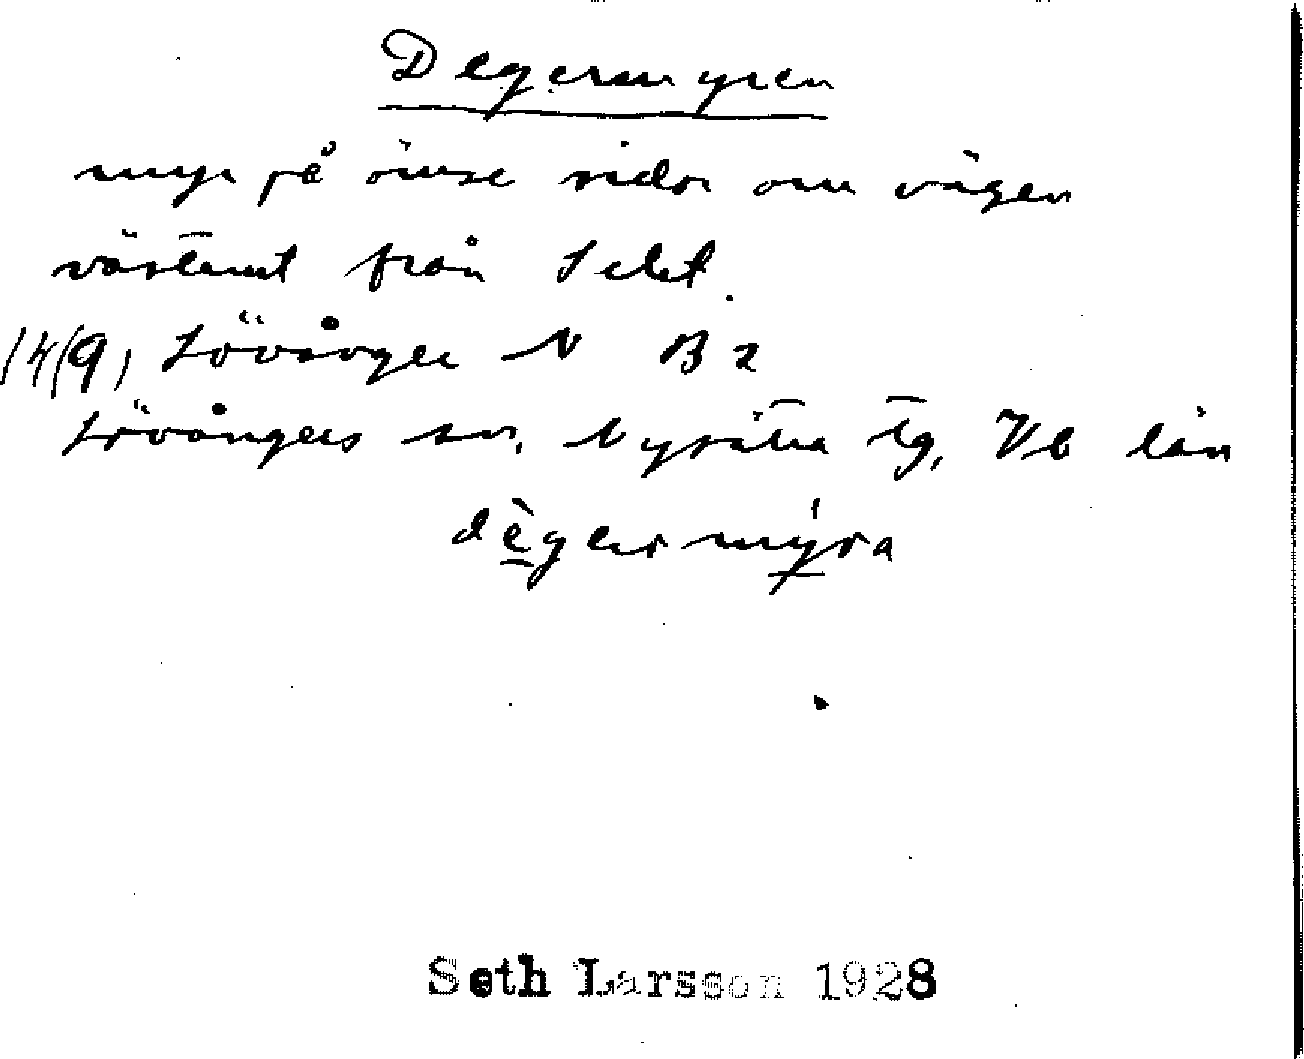 Degermyren
myr på ömse sidor om vägen
västerut från Selet.
14(9) Lövånger N B2
Lövångers sn, Nysätra tg, Vb län
dègermýra
Seth Larsson 1928